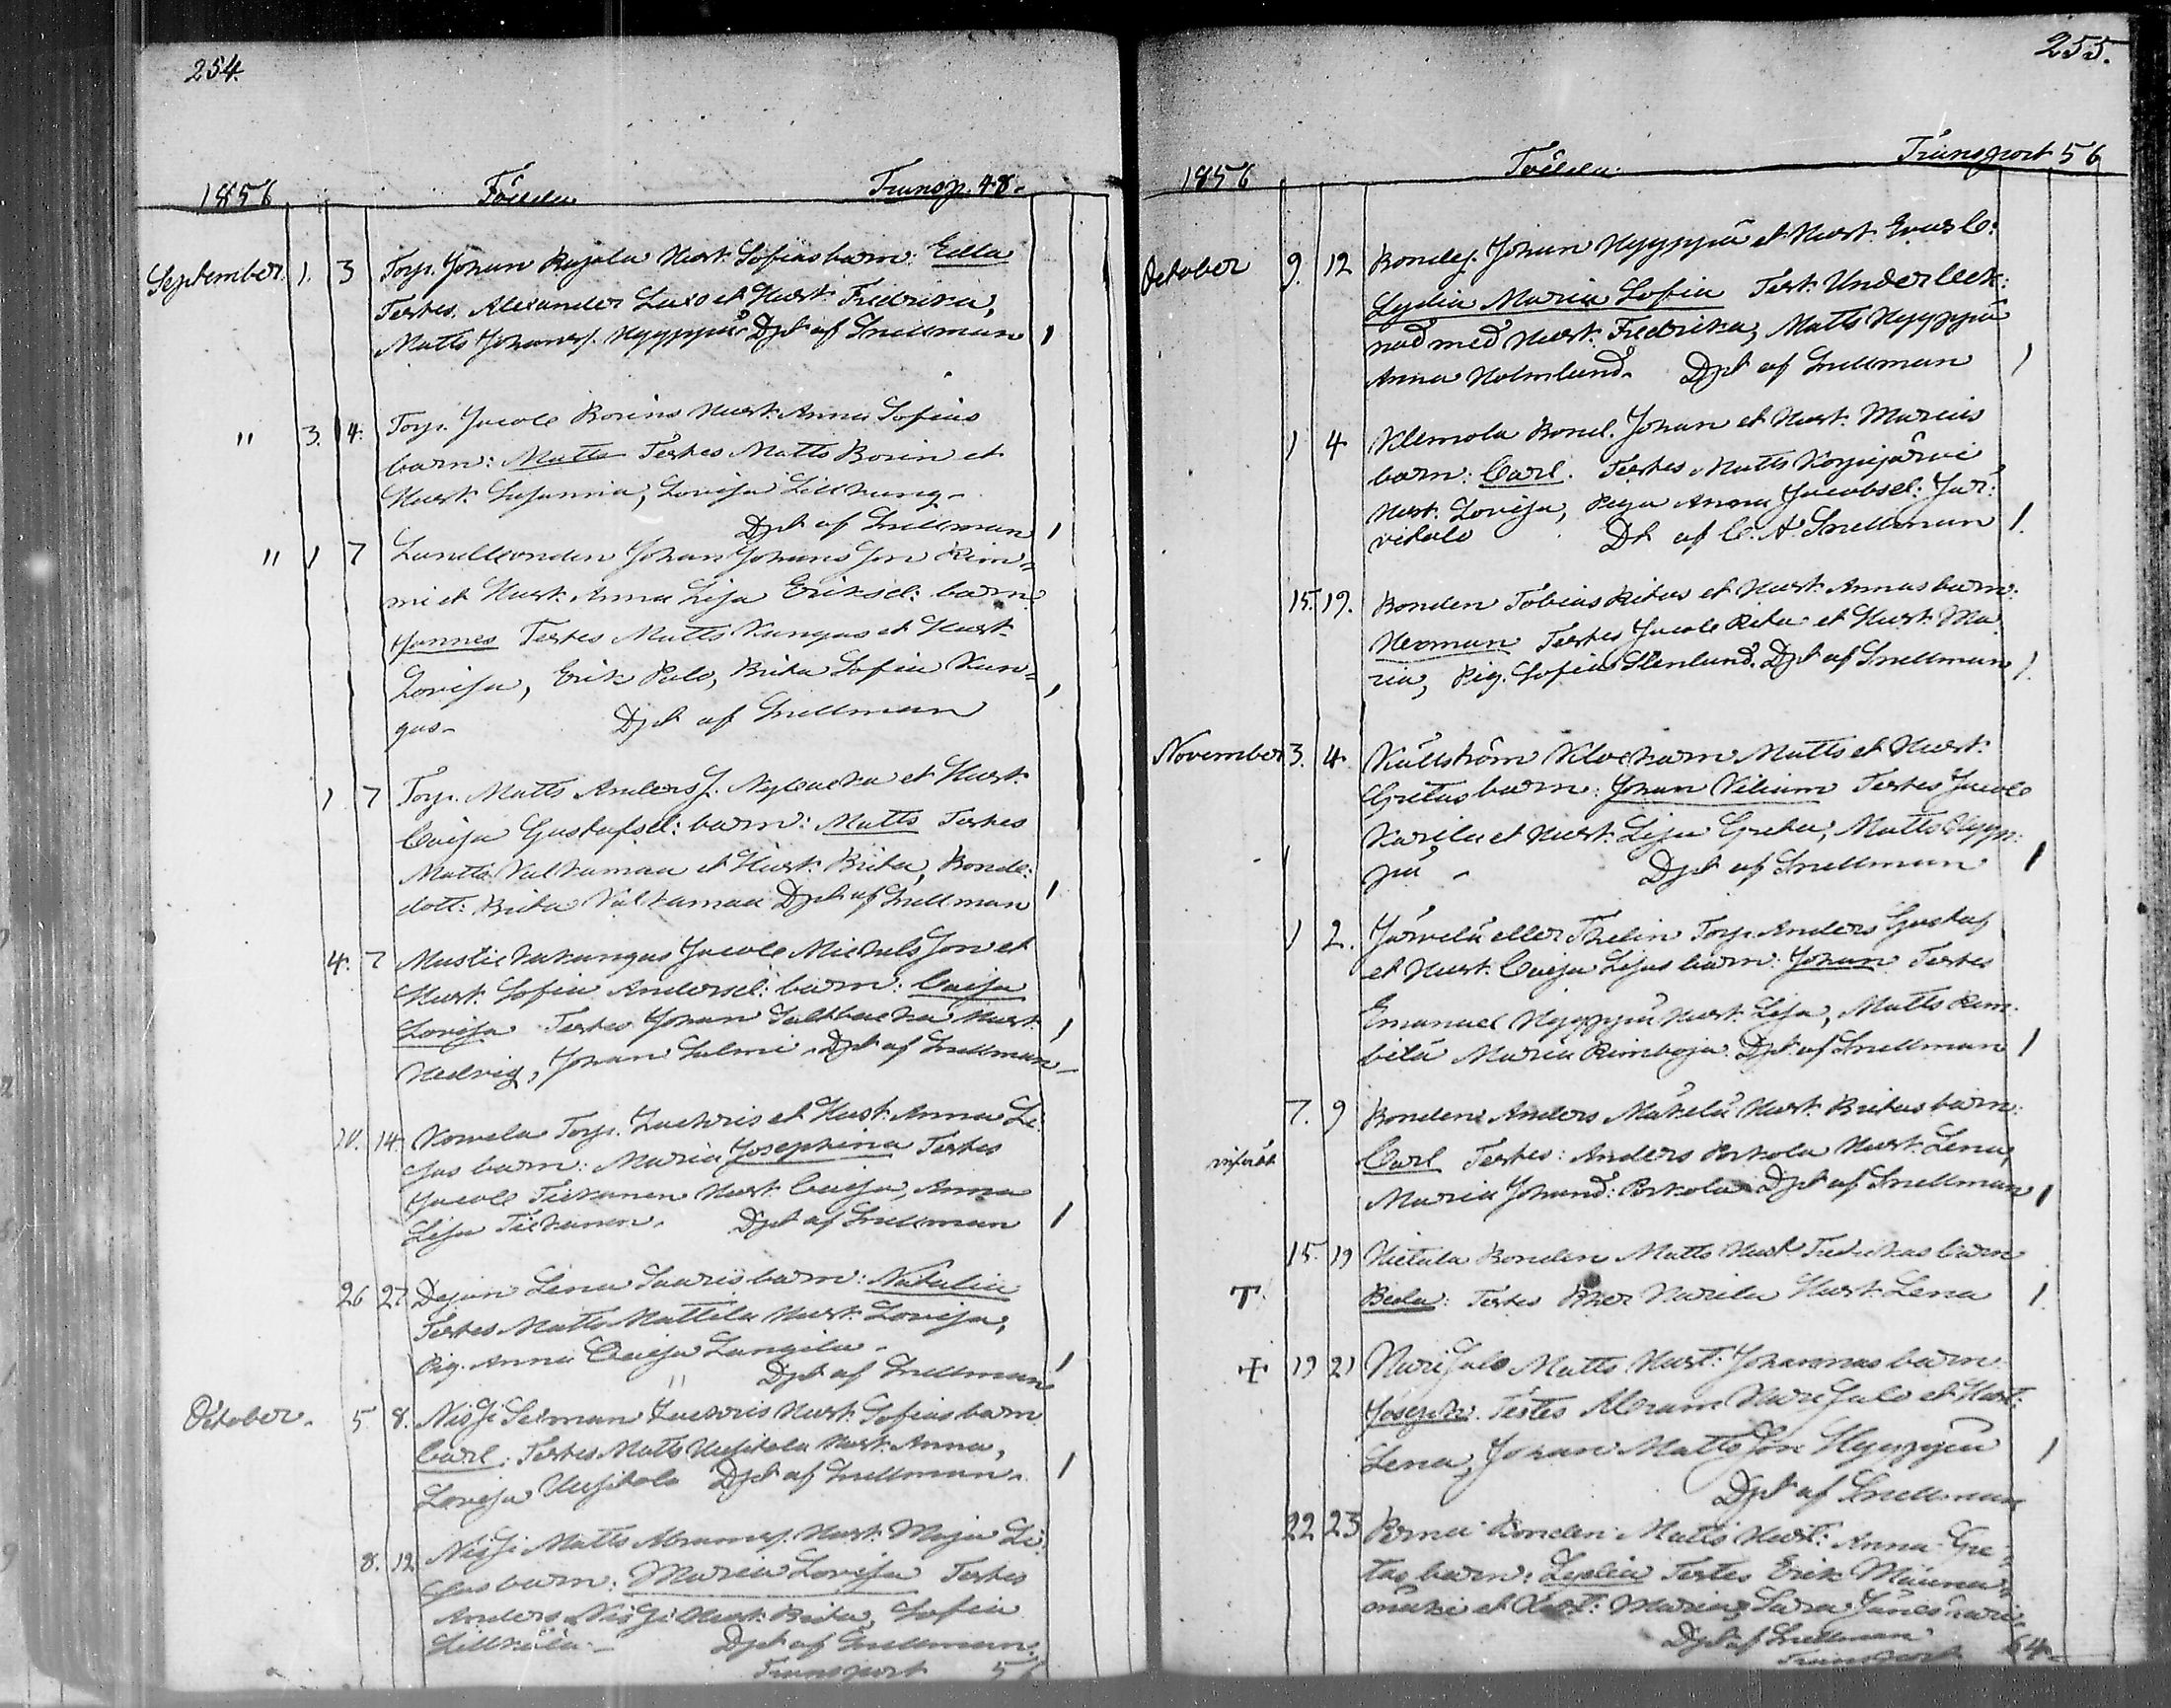 254.
1856 Födde Transp. 48.
September. 1. 3 Torp. Johan Rajala Hust. Sofias barn: Edla
Testes. Alexander Luxo et Hust. Fredrika,
Matts Johans. Nyyppää Dpt af Snellman 1
" 3. 4. Torp. Jacob Borins Hust. Anna Sofias
barn: Matts Testes Matts Borin et
Hust. Susanna, Lovisa Lillkung
Dpt af Snellman 1
" 1 7 Landbonden Johan Johans Son Rem-
mi et Hust. Anna Lisa Eriksd: barn:
Hannes Testes Matts Kangas et Hust.
Lovisa, Erik Palo, Brita Sofia Kan- 1
gas. Dpt af Snellman
1 7 Torp. Matts Anders S. Nybacka et Hust.
Caisa Gustafsd: barn: Matts Testes
Matts Valkamaa et Hust. Brita, Bonde:
dott: Brita Valkamaa Dpt af Snellman 1
4. 7 Mustickakangas Jacob Mickels Son et
Hust. Sofia Andersd: barn: Caisa
Lovisa Testes Johan Saltbacka Hust. 1
Hedvig, Johan Salmi. Dpt af Snellman
10. 14. Torp. Zachris et Hust. Anna Li-
sas barn: Maria Josephina Testes
Jacob Tickanen Hust. Caisa, Anna
Lisa Tickanen. Dpt af Snellman 1
26 27 Dejan Lena Sauris barn: Natalia
Testes Matts Mattila Hust. Lovisa,
Pig. Anna Caisa Langila.
" Dpt af Snellman 1
October. 5 8. Zachris Hust. Sofias barn
Carl. Testes Matts Uusitalo Hust. Anna,
Lovisa Uusitalo Dpt af Snellman. 1
8. 12 Matts Abrams. Hust. Maja Li-
sas barn: Maria Lovisa Testes
Anders Hust. Brita, Sofia
Dpt af Snellman.
Transport 56
255.
1856 Födde Transport 56
October 9. 12 Bondes. Johan Nyyppää et Hust. Evas b:
Lydia Maria Sofia Test. Underleut:
nad med Hust. Fredrika, Matts Nyyppää
Anna Holmlund. Dpt af Snellman 1
1 4 Klemola Bond. Johan et Hust. Marias
barn: Carl. Testes Matts Kopsjärvi
Hust. Lovisa, Piga Anna Jacobsd: Jär-
vitalo Dt af C. A. Snellman 1.
15. 19. Bonden Tobias Ritas et Hust. Annas barn:
Herman Testes Jacob Rita et Hust. Ma
ria, Pig. Sofia Stenlund. Dpt af Snellman 1.
November 3. 4. Källström Klockarn Matts et Hust.
Gretas barn: Johan Viliam Testes Jacob
Karila et Hust. Lisa Greta, Matts Nyyp-
pää Dpt af Snellman 1
1 2. Järvelä eller Thelin Torp. Anders Gustaf
et Hust. Caisa Lisas barn: Johan Testes
Emanuel Nyyppää Hust. Lisa, Matts Rim-
bilä Maria Rimboja. Dpt af Snellman 1
7. 9 Bonden Anders Mäkelä Hust. Britas barn:
Carl Testes: Anders Porkola Hust. Lena,
Maria Johansd: Porkola Dpt af Snellman 1
15. 19 Hietala Bonden Matts Hust. Fredrikas barn
T. Testes Karila Hust. Lena 1.
+ 19 21 Matts Hust: Johannas barn
Joseph. Testes Abram et Hust:
Lena, Johan Matts Son Nyyppää 1
Dpt af Snellman
22 23 Pernu Bonden Matts Hust: Anna Gre-
tas barn: Lydia Testes Erik Männa-
mäki et Hust: Maria, Sara
Dpt af Snellman
Transport 64